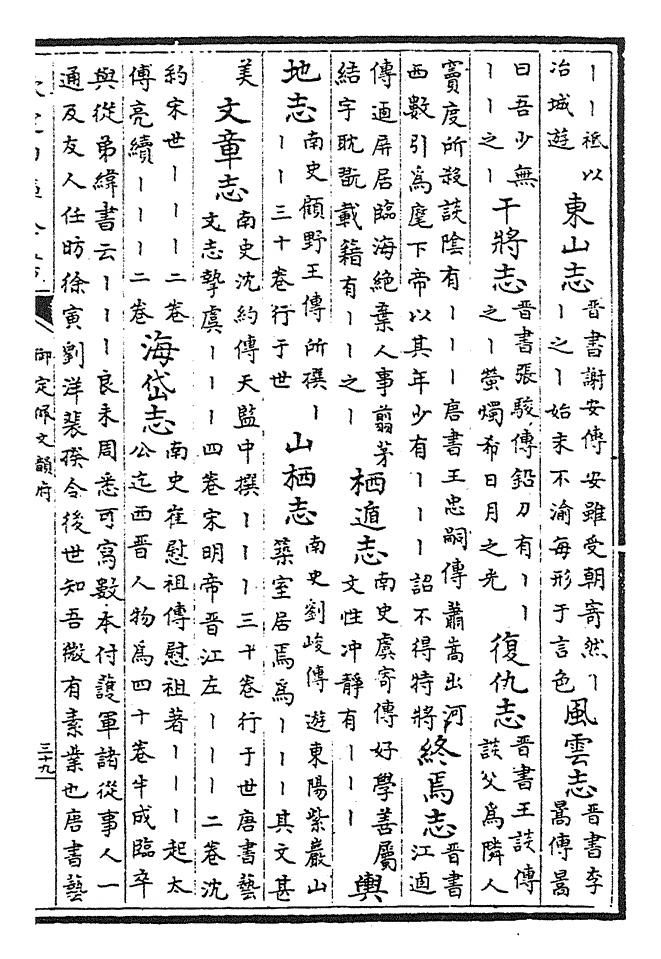 丨丨祗以
冶城遊
東山志
晉書謝安傳安雖受朝寄然丨
丨之丨始末不渝每形于言色
風雲志
晉書李
暠傳暠
曰吾少無
丨丨之丨
干將志
晉書張駿傳鉛刀有丨丨
之丨螢燭希日月之光
復仇志
晉書王談傳
談父爲隣人
竇度所殺談陰有丨丨丨唐書王忠嗣傳蕭嵩出河
西數引爲麾下帝以其年少有丨丨丨詔不得特將
終焉志
晉書
江逌
傳逌屏居臨海絕棄人事翦茅
結宇耽翫載籍有丨丨之丨
栖遁志
南史虞寄傳好學善屬
文性冲靜有丨丨丨
輿
地志
南史顧野王傳所撰丨
丨丨三十卷行于世
山栖志
南史劉峻傳遊東陽紫巖山
築室居焉爲丨丨丨其文甚
美
文章志
南史沈約傳天監中撰丨丨丨三十卷行于世唐書藝
文志摯虞丨丨丨四卷宋明帝晉江左丨丨丨二卷沈
約宋世丨丨丨二卷
傅亮續丨丨丨二卷
海岱志
南史崔慰祖傳慰祖著丨丨丨起太
公迄西晉人物爲四十卷半成臨卒
與從弟緯書云丨丨丨良未周悉可寫數本付護軍諸從事人一
通及友人任昉徐寅劉洋裴揆令後世知吾微有素業也唐書藝
御定佩文韻府
三十九